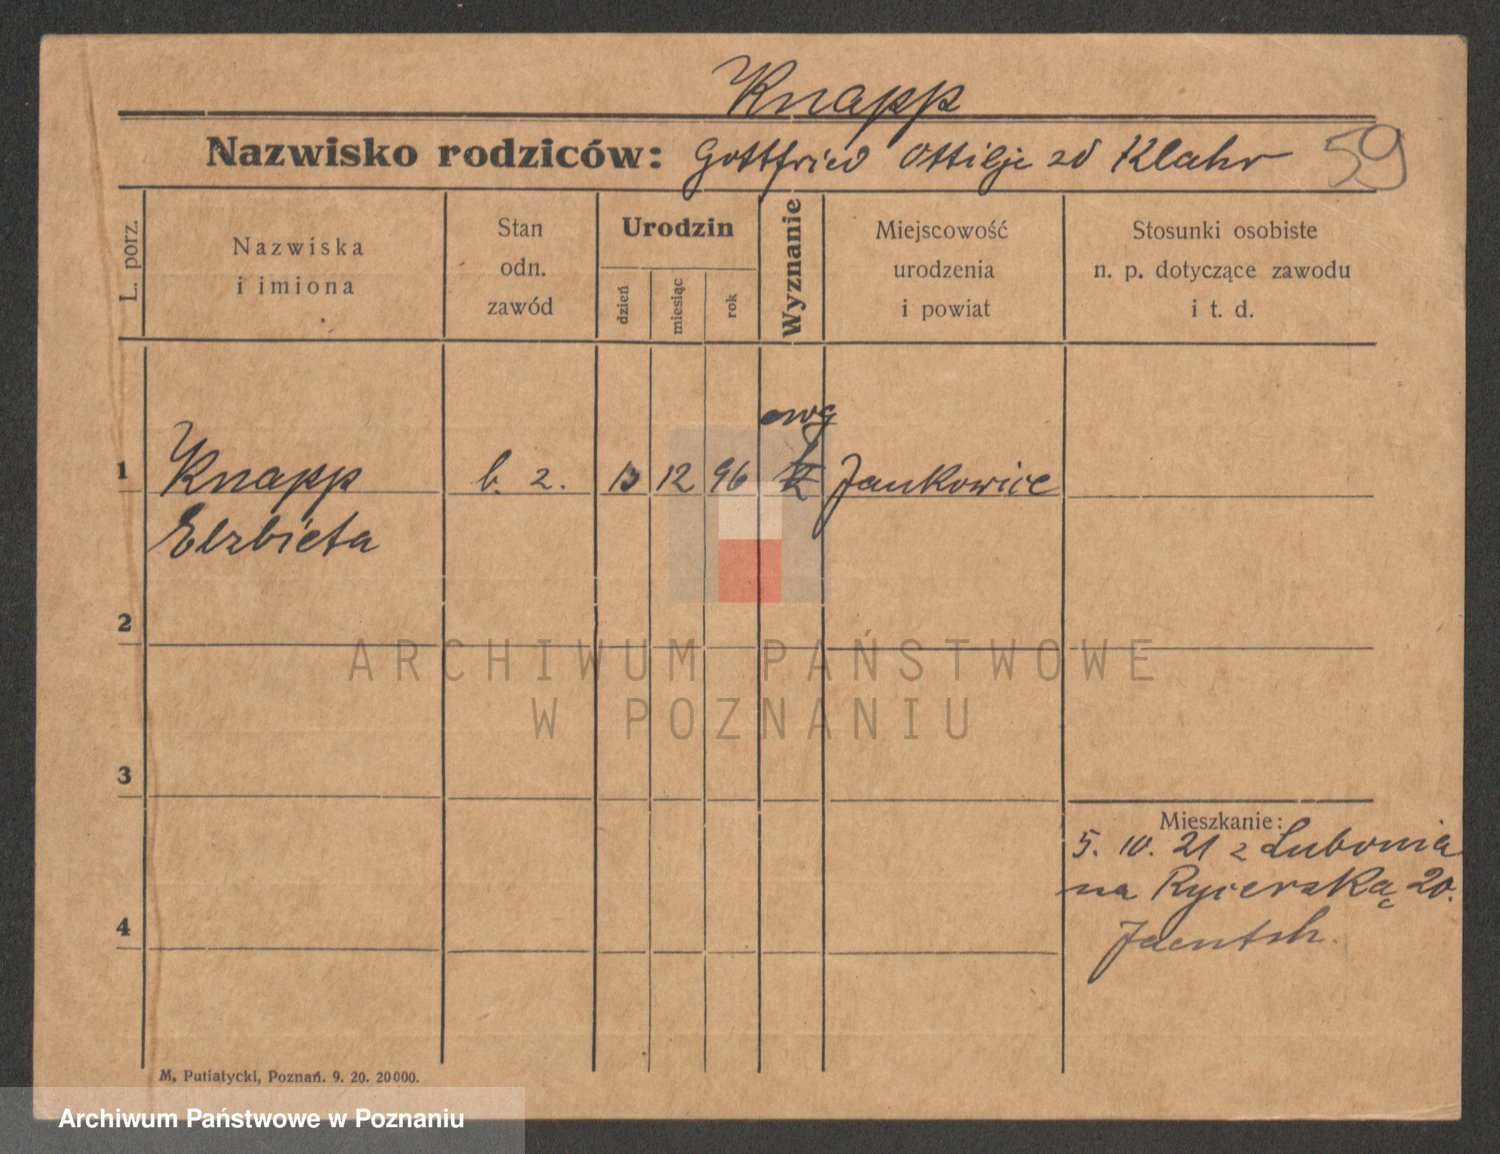 Knapp
Nazwisko rodziców: Gottfried Ottilje zd Klahr 59
L. porz.
Nazwiska
i imiona
Stan
odn.
zawód
Urodzin
dzień
miesiąc
rok
Wyznanie
Miejscowość
urodzenia
i powiat
Stosunki osobiste
n. p. dotyczące zawodu
i t. d.
ewg
1 Knapp b. z. 13 12 96 k Jankowice
Elzbieta
2
ARCHIWUM PAŃSTWOWE
W POZNANIU
3
Mieszkanie:
5. 10. 21 z Lubonia
na Rycerską 20.
4
Jaentsh.
M. Putiatycki, Poznań. 9. 20. 20000.
Archiwum Państwowe w Poznaniu